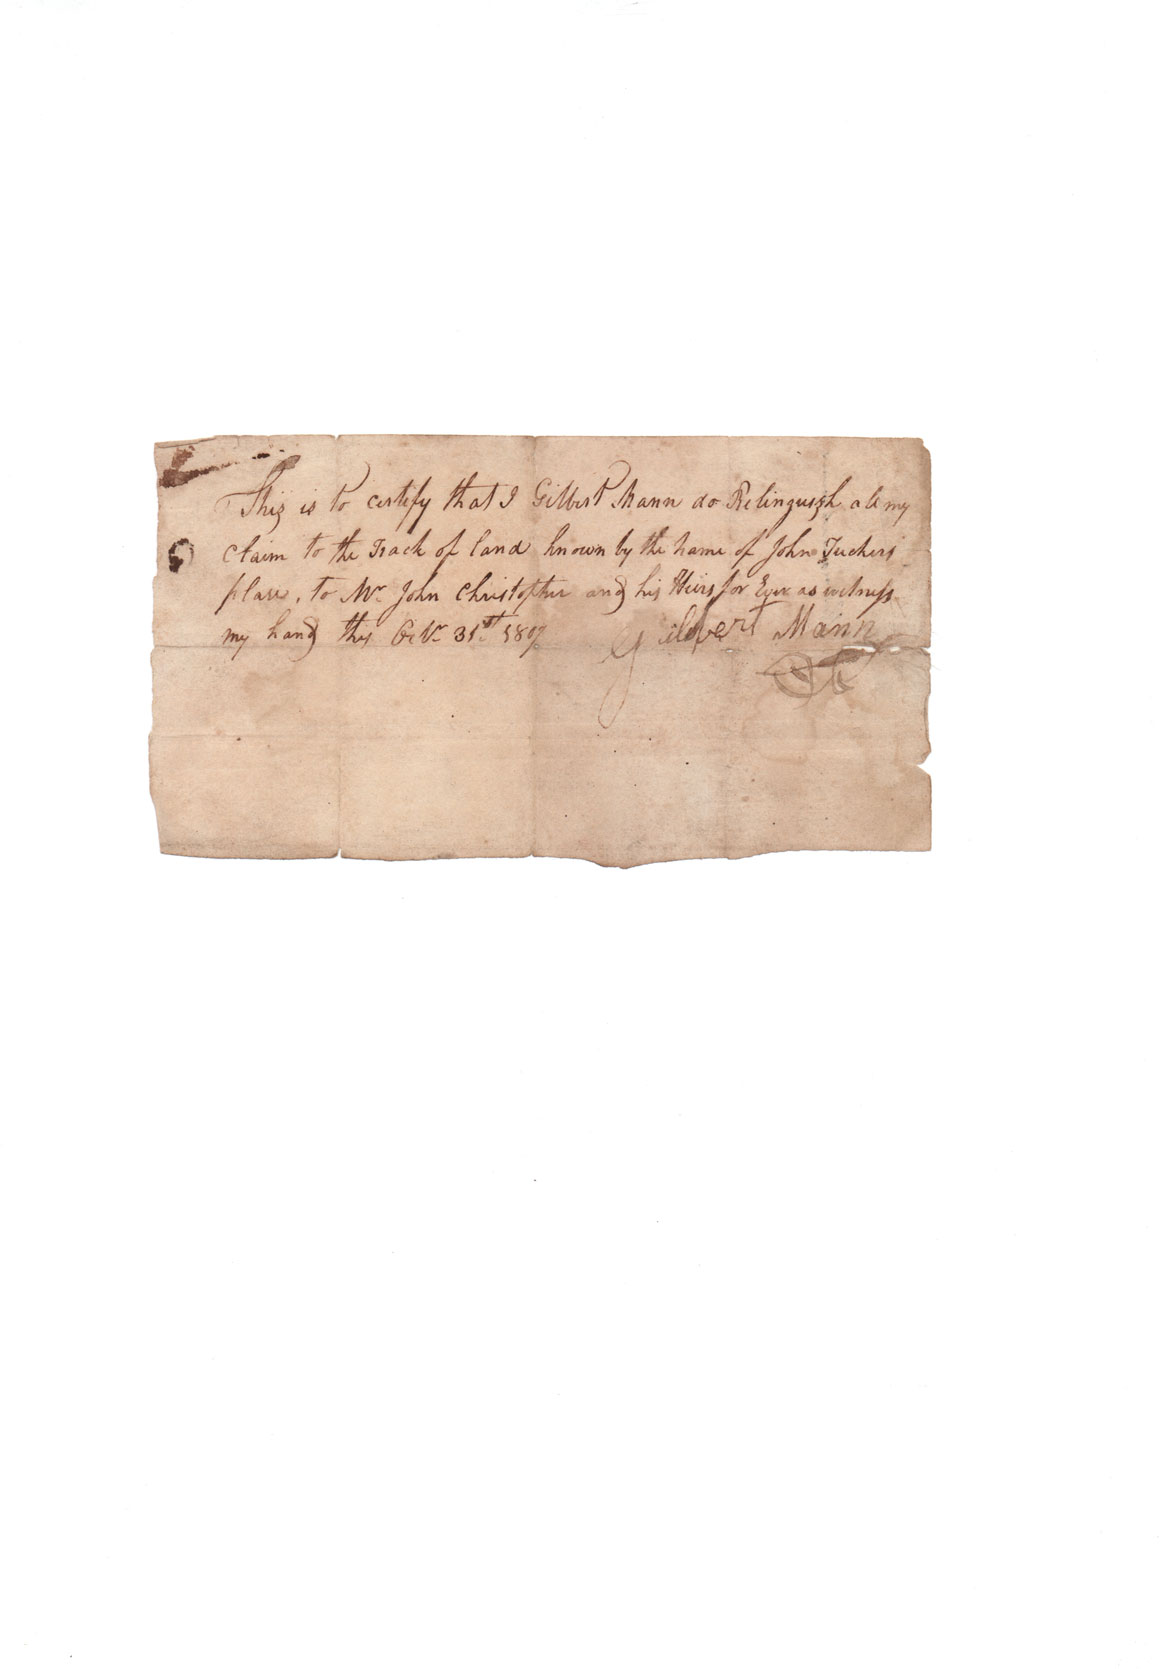 This is to certify that I Gilbert Mann do Relinquish all my
claim to the Track of land known by the name of John Tuckers
place, to Mr. John Christopher and his Heirs for Ever as witness
my hand this Octr. 31st 1807
Gilbert Mann